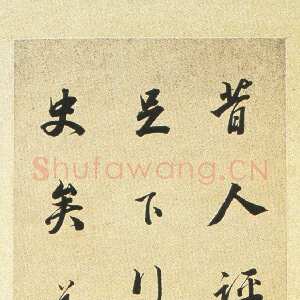 昔人評
足下行
史矣
Shufawang.CN